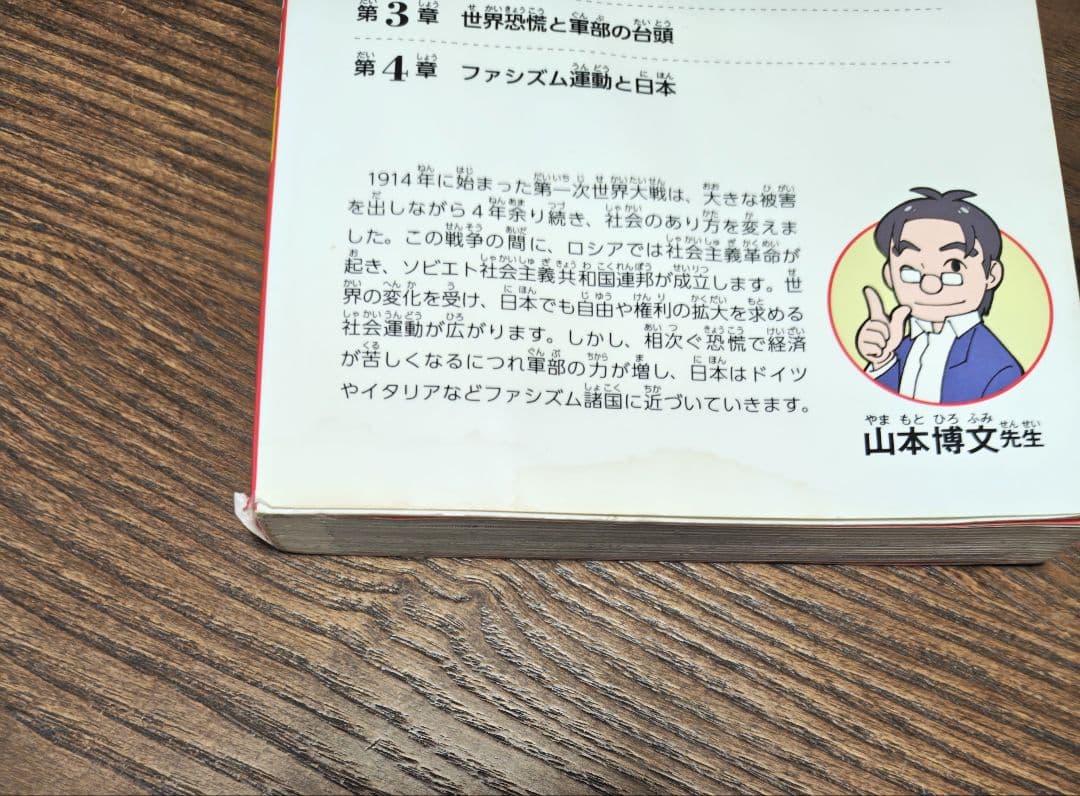 第3章 世界恐慌と軍部の台頭
第4章 ファシズム運動と日本
1914年に始まった第一次世界大戦は、大きな被害
を出しながら4年余り続き、社会のあり方を変えま
した。この戦争の間に、ロシアでは社会主義革命が
起き、ソビエト社会主義共和国連邦が成立します。世
界の変化を受け、日本でも自由や権利の拡大を求める
社会運動が広がります。しかし、相次ぐ恐慌で経済
が苦しくなるにつれ軍部の力が増し、日本はドイツ
やイタリアなどファシズム諸国に近づいていきます。
やまもとひろふみせんせい
山本博文先生